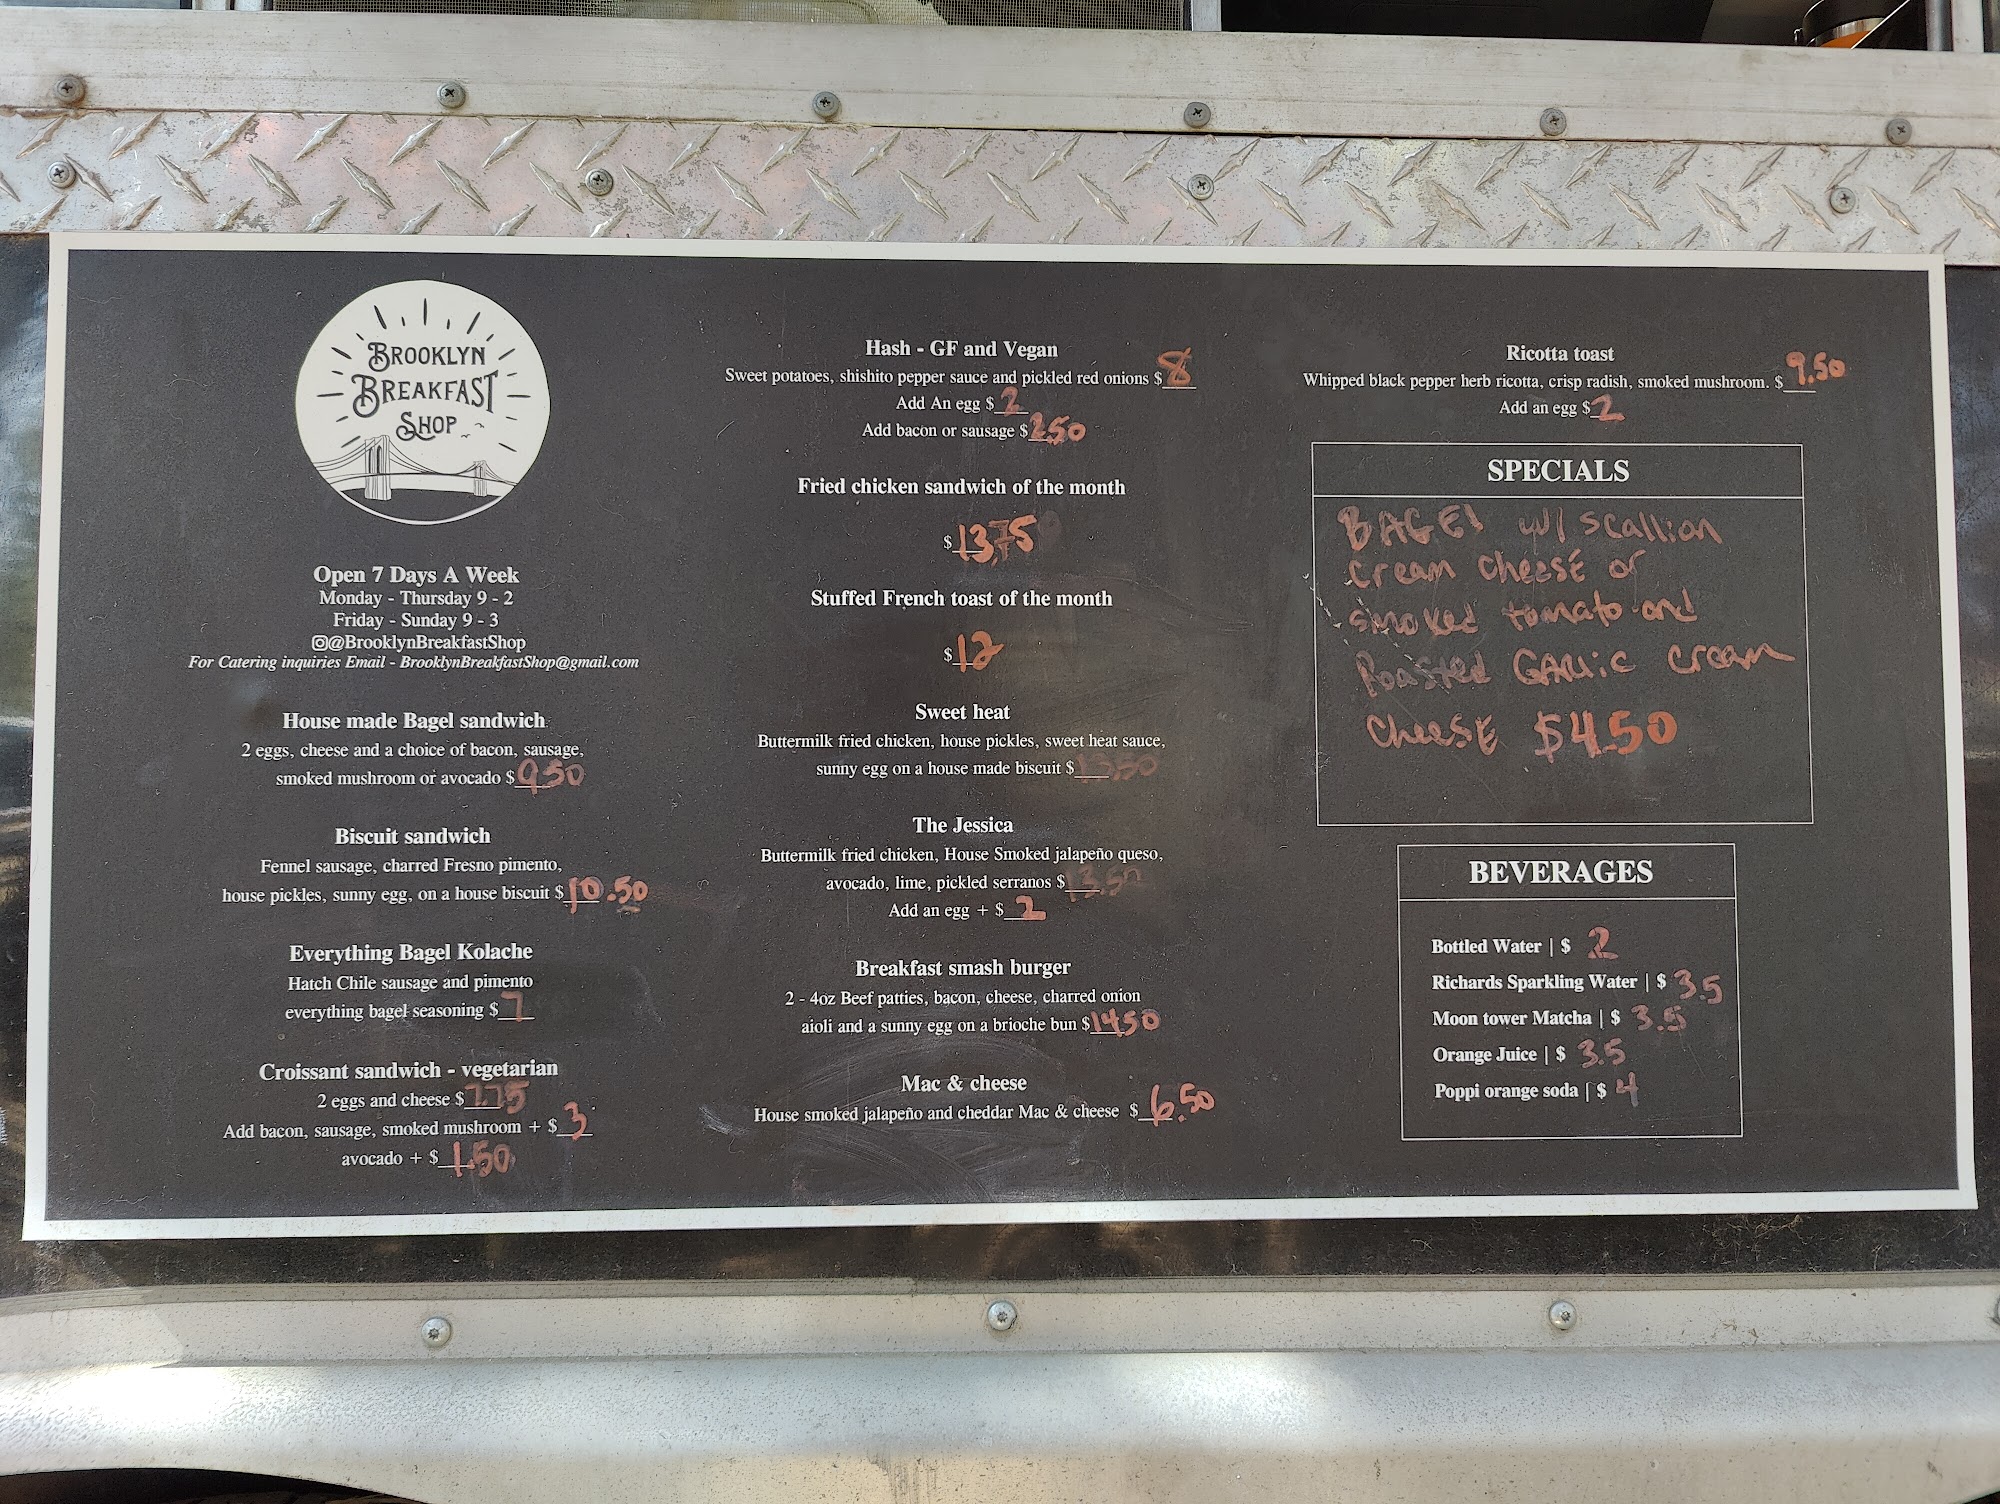 BROOKLYN
BREAKFAST
SHOP
Open 7 Days A Week
Monday - Thursday 9 - 2
Friday - Sunday 9 - 3
@BrooklynBreakfastShop
For Catering inquiries Email - BrooklynBreakfastShop@gmail.com
House made Bagel sandwich
2 eggs, cheese and a choice of bacon, sausage,
smoked mushroom or avocado $9.50
Biscuit sandwich
Fennel sausage, charred Fresno pimento,
house pickles, sunny egg, on a house biscuit $10.50
Everything Bagel Kolache
Hatch Chile sausage and pimento
everything bagel seasoning $7
Croissant sandwich - vegetarian
2 eggs and cheese $7.75
Add bacon, sausage, smoked mushroom + $3
avocado + $1.50
Hash - GF and Vegan
Sweet potatoes, shishito pepper sauce and pickled red onions $8
Add An egg $2
Add bacon or sausage $2.50
Fried chicken sandwich of the month
$13.75
Stuffed French toast of the month
$12
Sweet heat
Buttermilk fried chicken, house pickles, sweet heat sauce,
sunny egg on a house made biscuit $13.50
The Jessica
Buttermilk fried chicken, House Smoked jalapeño queso,
avocado, lime, pickled serranos $13.50
Add an egg + $2
Breakfast smash burger
2 - 4oz Beef patties, bacon, cheese, charred onion
aioli and a sunny egg on a brioche bun $14.50
Mac & cheese
House smoked jalapeño and cheddar Mac & cheese $6.50
Ricotta toast
Whipped black pepper herb ricotta, crisp radish, smoked mushroom. $9.50
Add an egg $2
SPECIALS
BAGEl w/ scallion
cream cheese or
smoked tomato and
Roasted GARlic cream
cheese $4.50
BEVERAGES
Bottled Water | $ 2
Richards Sparkling Water | $ 3.5
Moon tower Matcha | $ 3.5
Orange Juice | $ 3.5
Poppi orange soda | $ 4